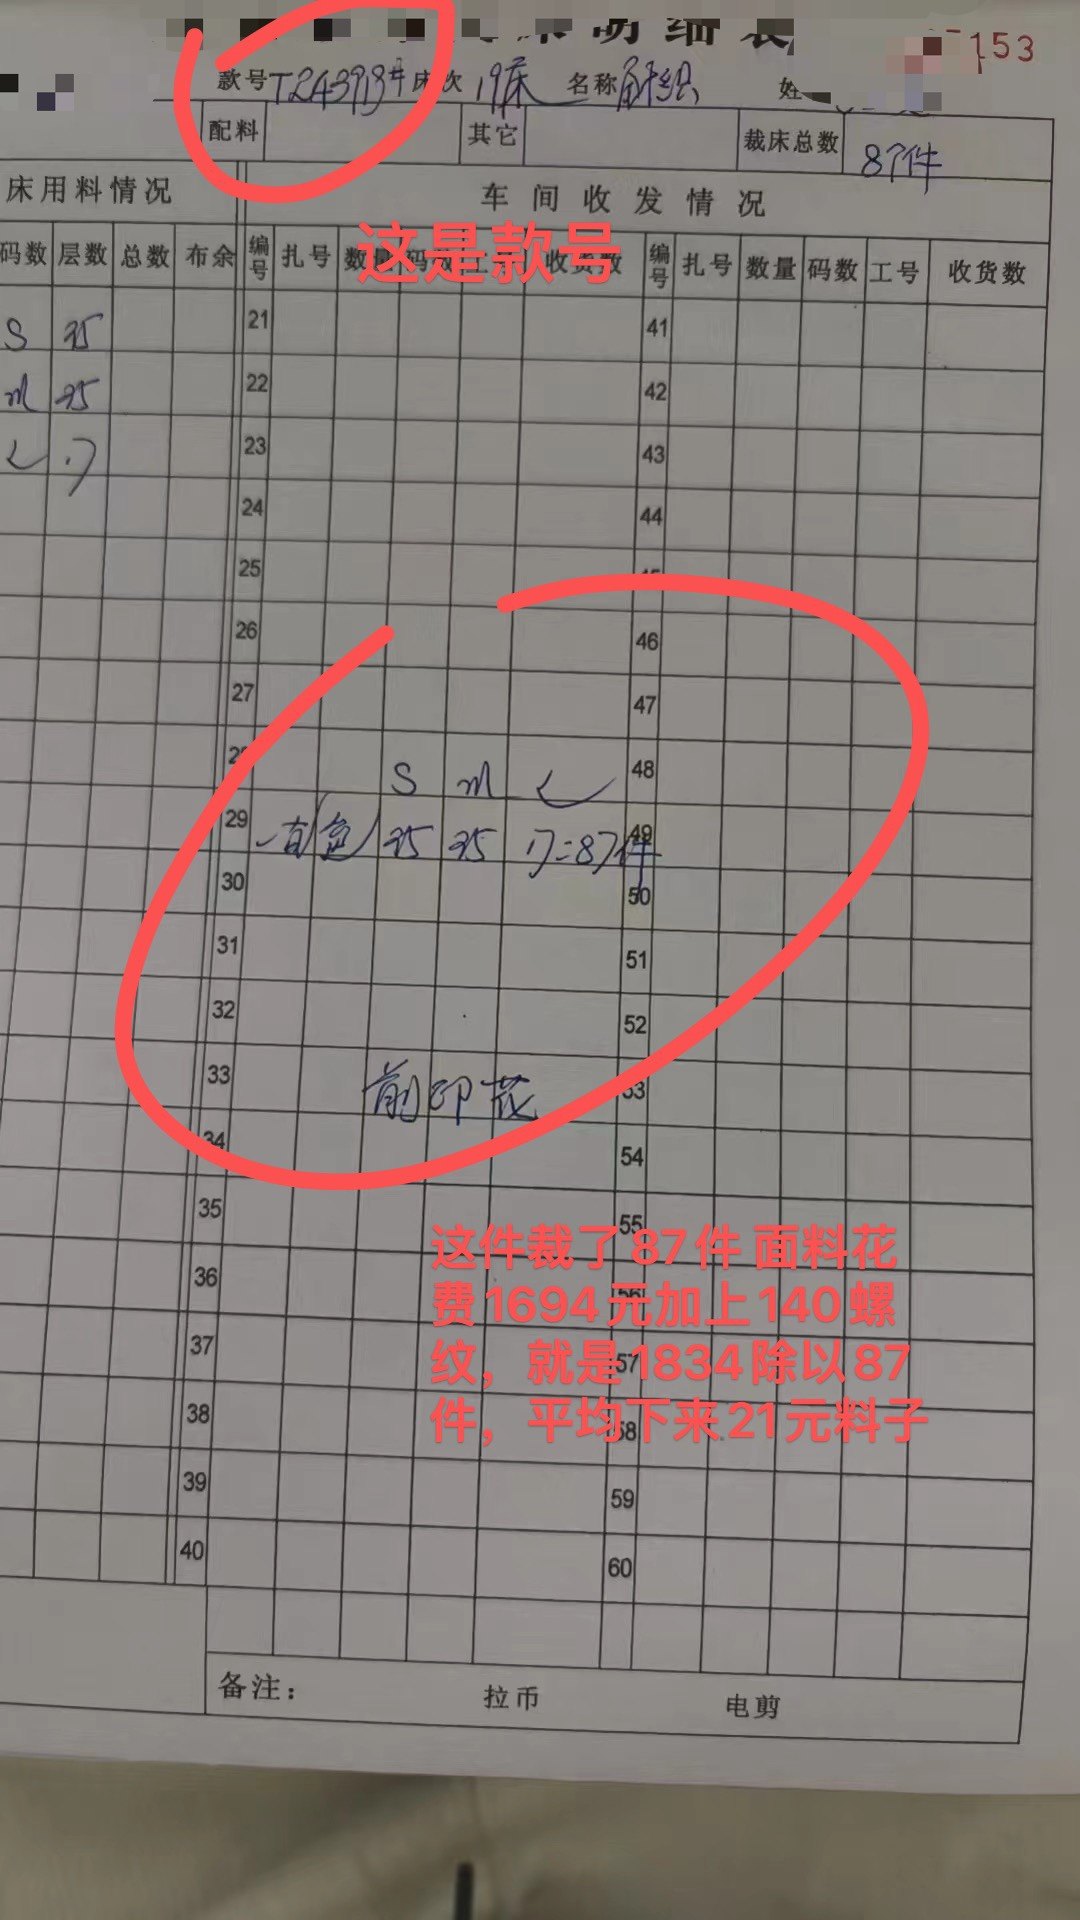 明细表
153
款号 T24393# 床次 19床 名称 针织 姓
配料 其它 裁床总数 87件
床用料情况 车间收发情况
这是款号
码数 层数 总数 布余 编号 扎号 数量 码数 工号 收货数 编号 扎号 数量 码数 工号 收货数
S 35 21 41
m 35 22 42
L 17 23 43
24 44
25 45
26 46
27 47
28 S m L 48
29 35 35 17=87件 49
30 50
31 51
32 52
33 前印花 53
34 54
35 55
这件裁了87件 面料花
36 56
费1694元加上140螺
37 57
纹，就是1834除以87
38 58
件，平均下来21元料子
39 59
40 60
备注： 拉币 电剪